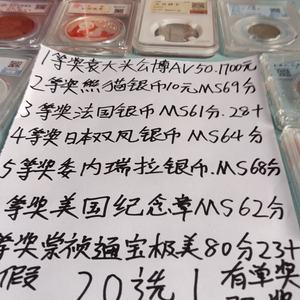 1等奖袁大头公博AV50.1700元
2等奖熊猫银币10元MS69分
3等奖法国银币MS61分.28+
4等奖日本双凤银币MS64分
5等奖委内瑞拉银币.MS68分
等奖美国纪念章MS62分
等奖崇祯通宝极美80分23+
假 20选1 有单奖